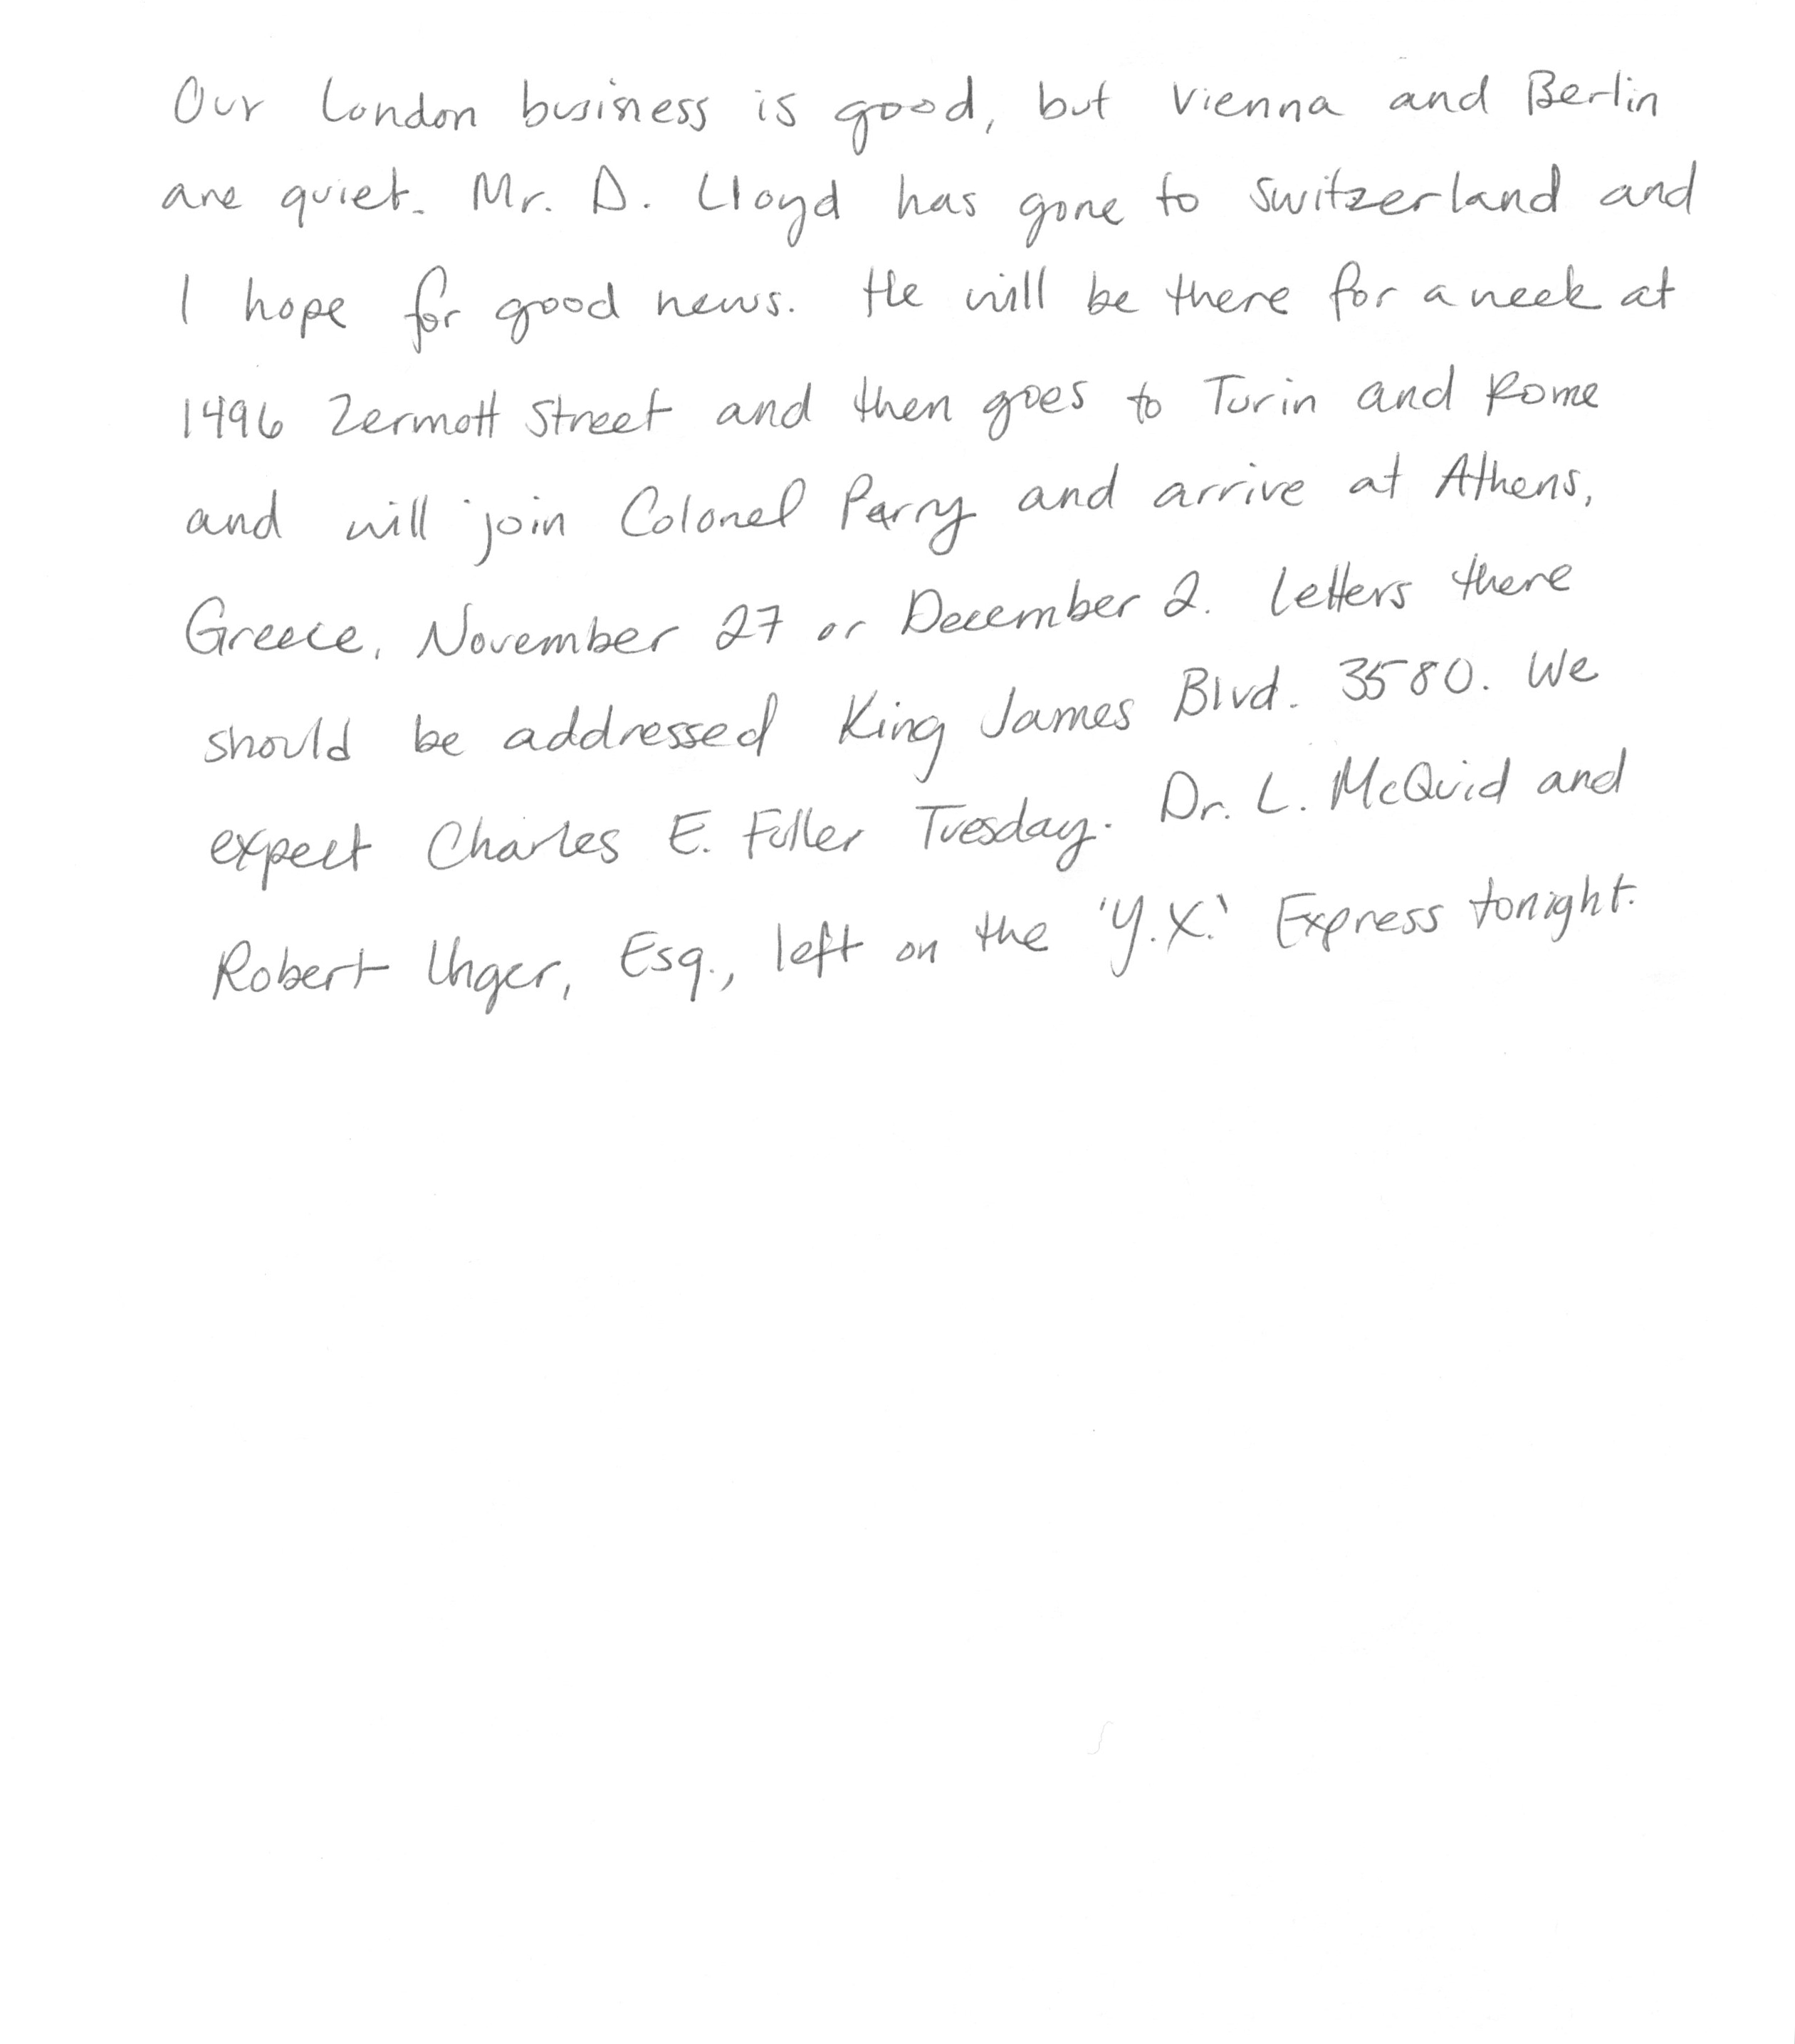 Our London business is good, but Vienna and Berlin
are quiet. Mr. D. Lloyd has gone to Switzerland and
I hope for good news. He will be there for a week at
1496 Zermott Street and then goes to Turin and Rome
and will join Colonel Parry and arrive at Athens,
Greece, November 27 or December 2. Letters there
should be addressed King James Blvd. 3580. We
expect Charles E. Fuller Tuesday. Dr. L. McQuid and
Robert Unger, Esq., left on the 'Y.X.' Express tonight.